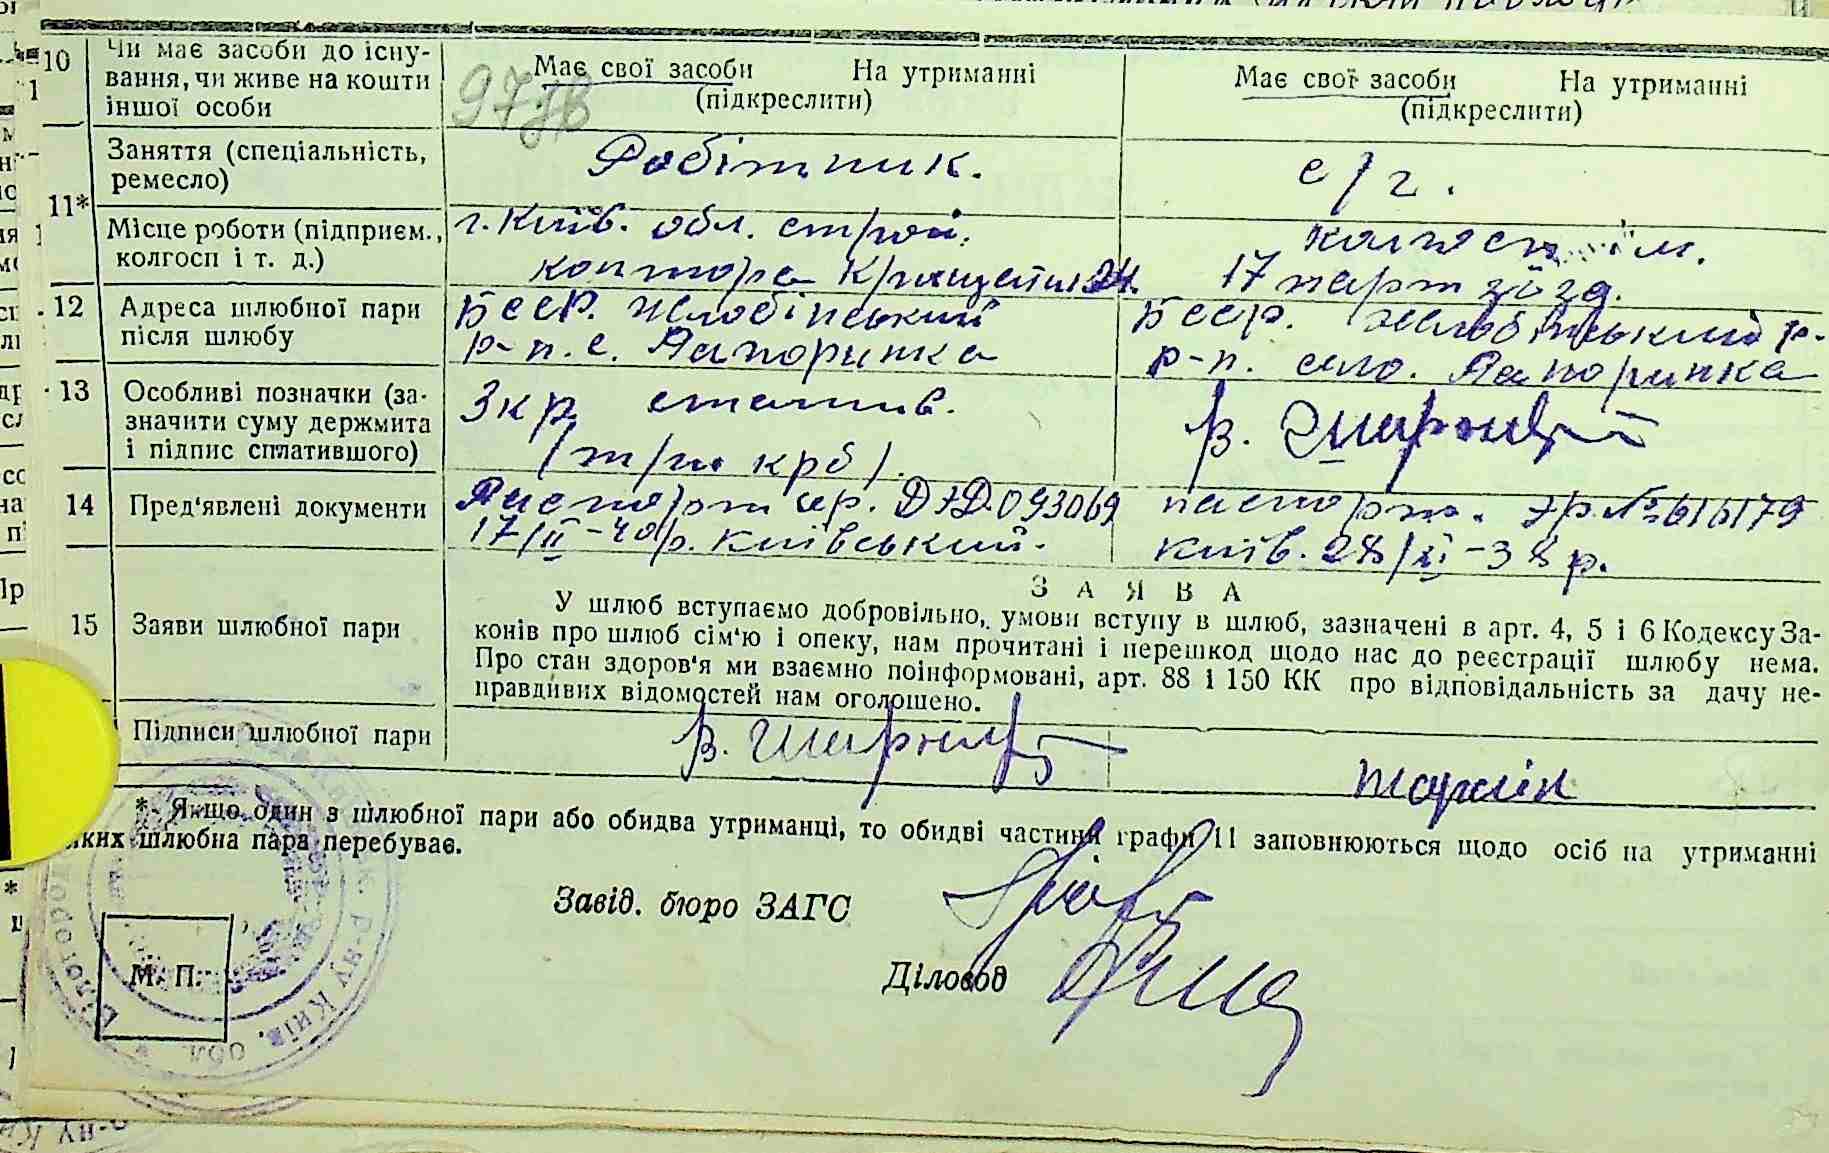 10
Чи має засоби до існу-
вання, чи живе на кошти
іншої особи
Має свої засоби На утриманні
(підкреслити)
Має свої засоби На утриманні
(підкреслити)
11*
Заняття (спеціальність,
ремесло)
Робітник.
с/г.
Місце роботи (підприєм.,
колгосп і т. д.)
г. Київ. обл. строй.
контора
колгосп ім.
17 партз'їзд.
12
Адреса шлюбної пари
після шлюбу
БССР. Жлобінський
р-н. с. Папоринка
БССР. Жлобінський р.
р-н. село. Папоринка
13
Особливі позначки (за-
значити суму держмита
і підпис сплатившого)
3 кр
(три крб).
В.
14
Пред'явлені документи
Паспорт сер. 093069
17/II-40р. Київський.
паспорт. № 616179
Київ. 28/II-38 р.
15
Заяви шлюбної пари
ЗАЯВА
У шлюб вступаємо добровільно, умови вступу в шлюб, зазначені в арт. 4, 5 і 6 Кодексу За-
конів про шлюб сім'ю і опеку, нам прочитані і перешкод щодо нас до реєстрації шлюбу нема.
Про стан здоров'я ми взаємно поінформовані, арт. 88 і 150 КК про відповідальність за дачу не-
правдивих відомостей нам оголошено.
Підписи шлюбної пари
В.
*. Якщо один з шлюбної пари або обидва утриманці, то обидві частини графи 11 заповнюються щодо осіб на утриманні
яких шлюбна пара перебуває.
Завід. бюро ЗАГС
Діловод
М. П.
р-ну Київ. обл.